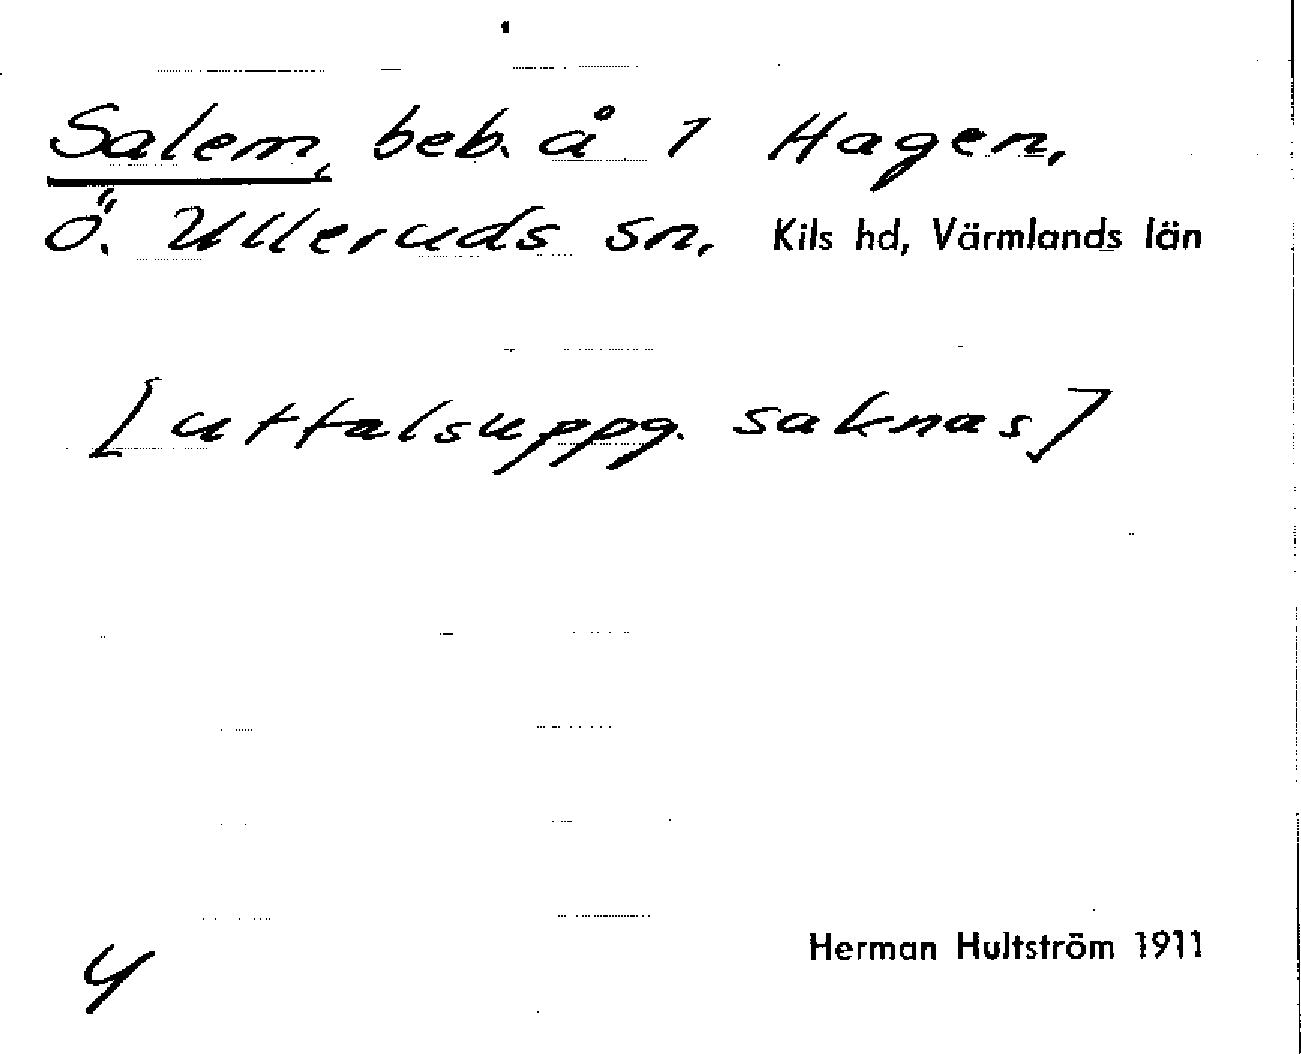 Salem, beb. å 1 Hagen,
Ö. Ulleruds sn, Kils hd, Värmlands län
[uttalsuppg. saknas]
Herman Hultström 1911
4